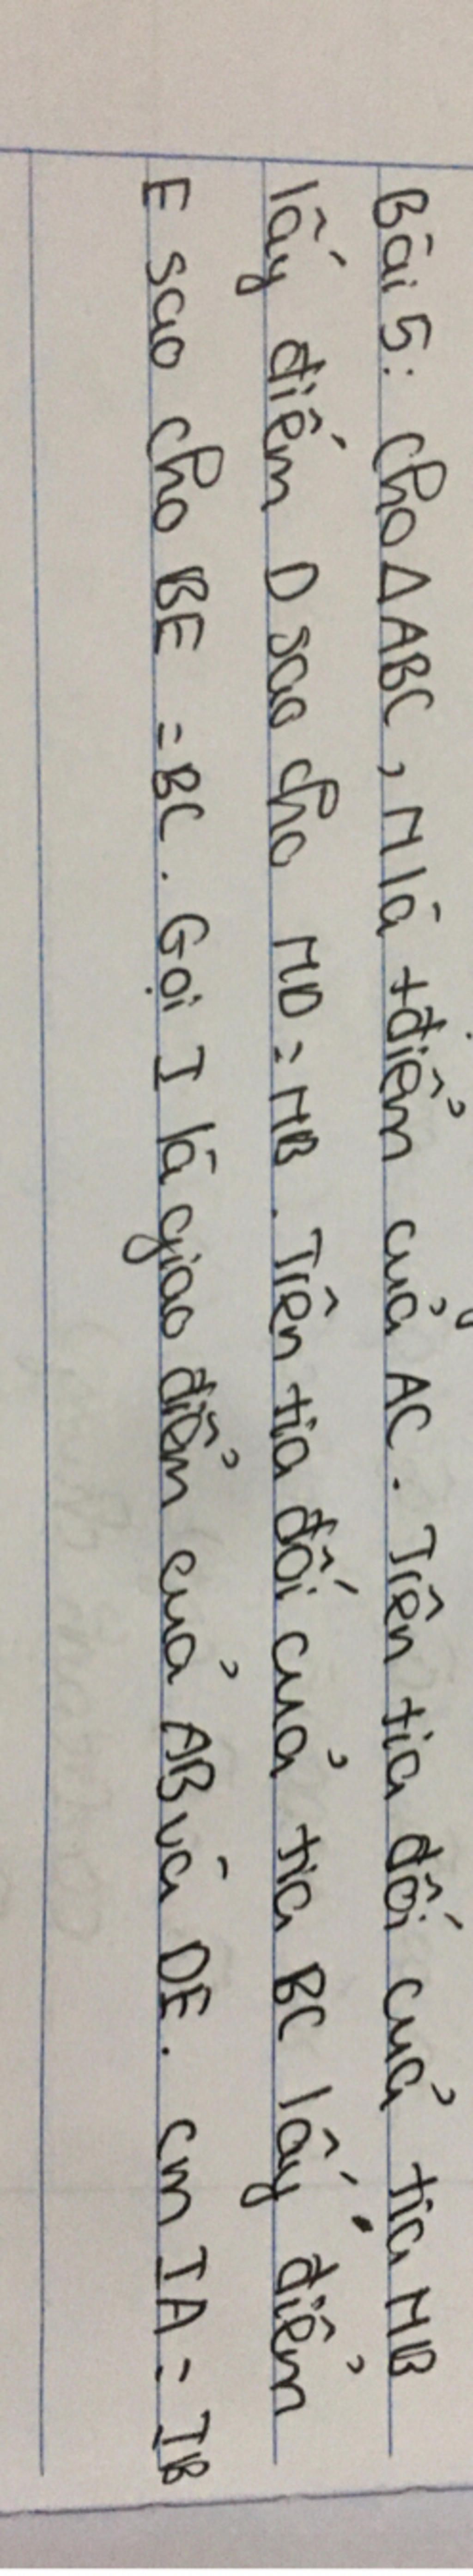 Bài 5: Cho Δ ABC, M là tđiểm của AC. Trên tia đối của tia MB
lấy điểm D sao cho MD = MB. Trên tia đối của tia BC lấy điểm
E sao cho BE = BC. Gọi I là giao điểm của AB và DE. cm IA = IB